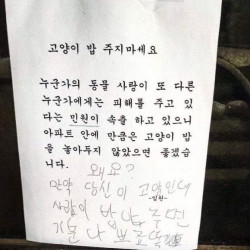 고양이 밥 주지마세요
누군가의 동물 사랑이 또 다른
누군가에게는 피해를 주고 있
다는 민원이 속출 하고 있으니
아파트 안에 만큼은 고양이 밥
을 놓아두지 않았으면 좋겠습
니다.
왜요?
만약 당신이 고양인데
사람이 밥 안 주면
기분 나